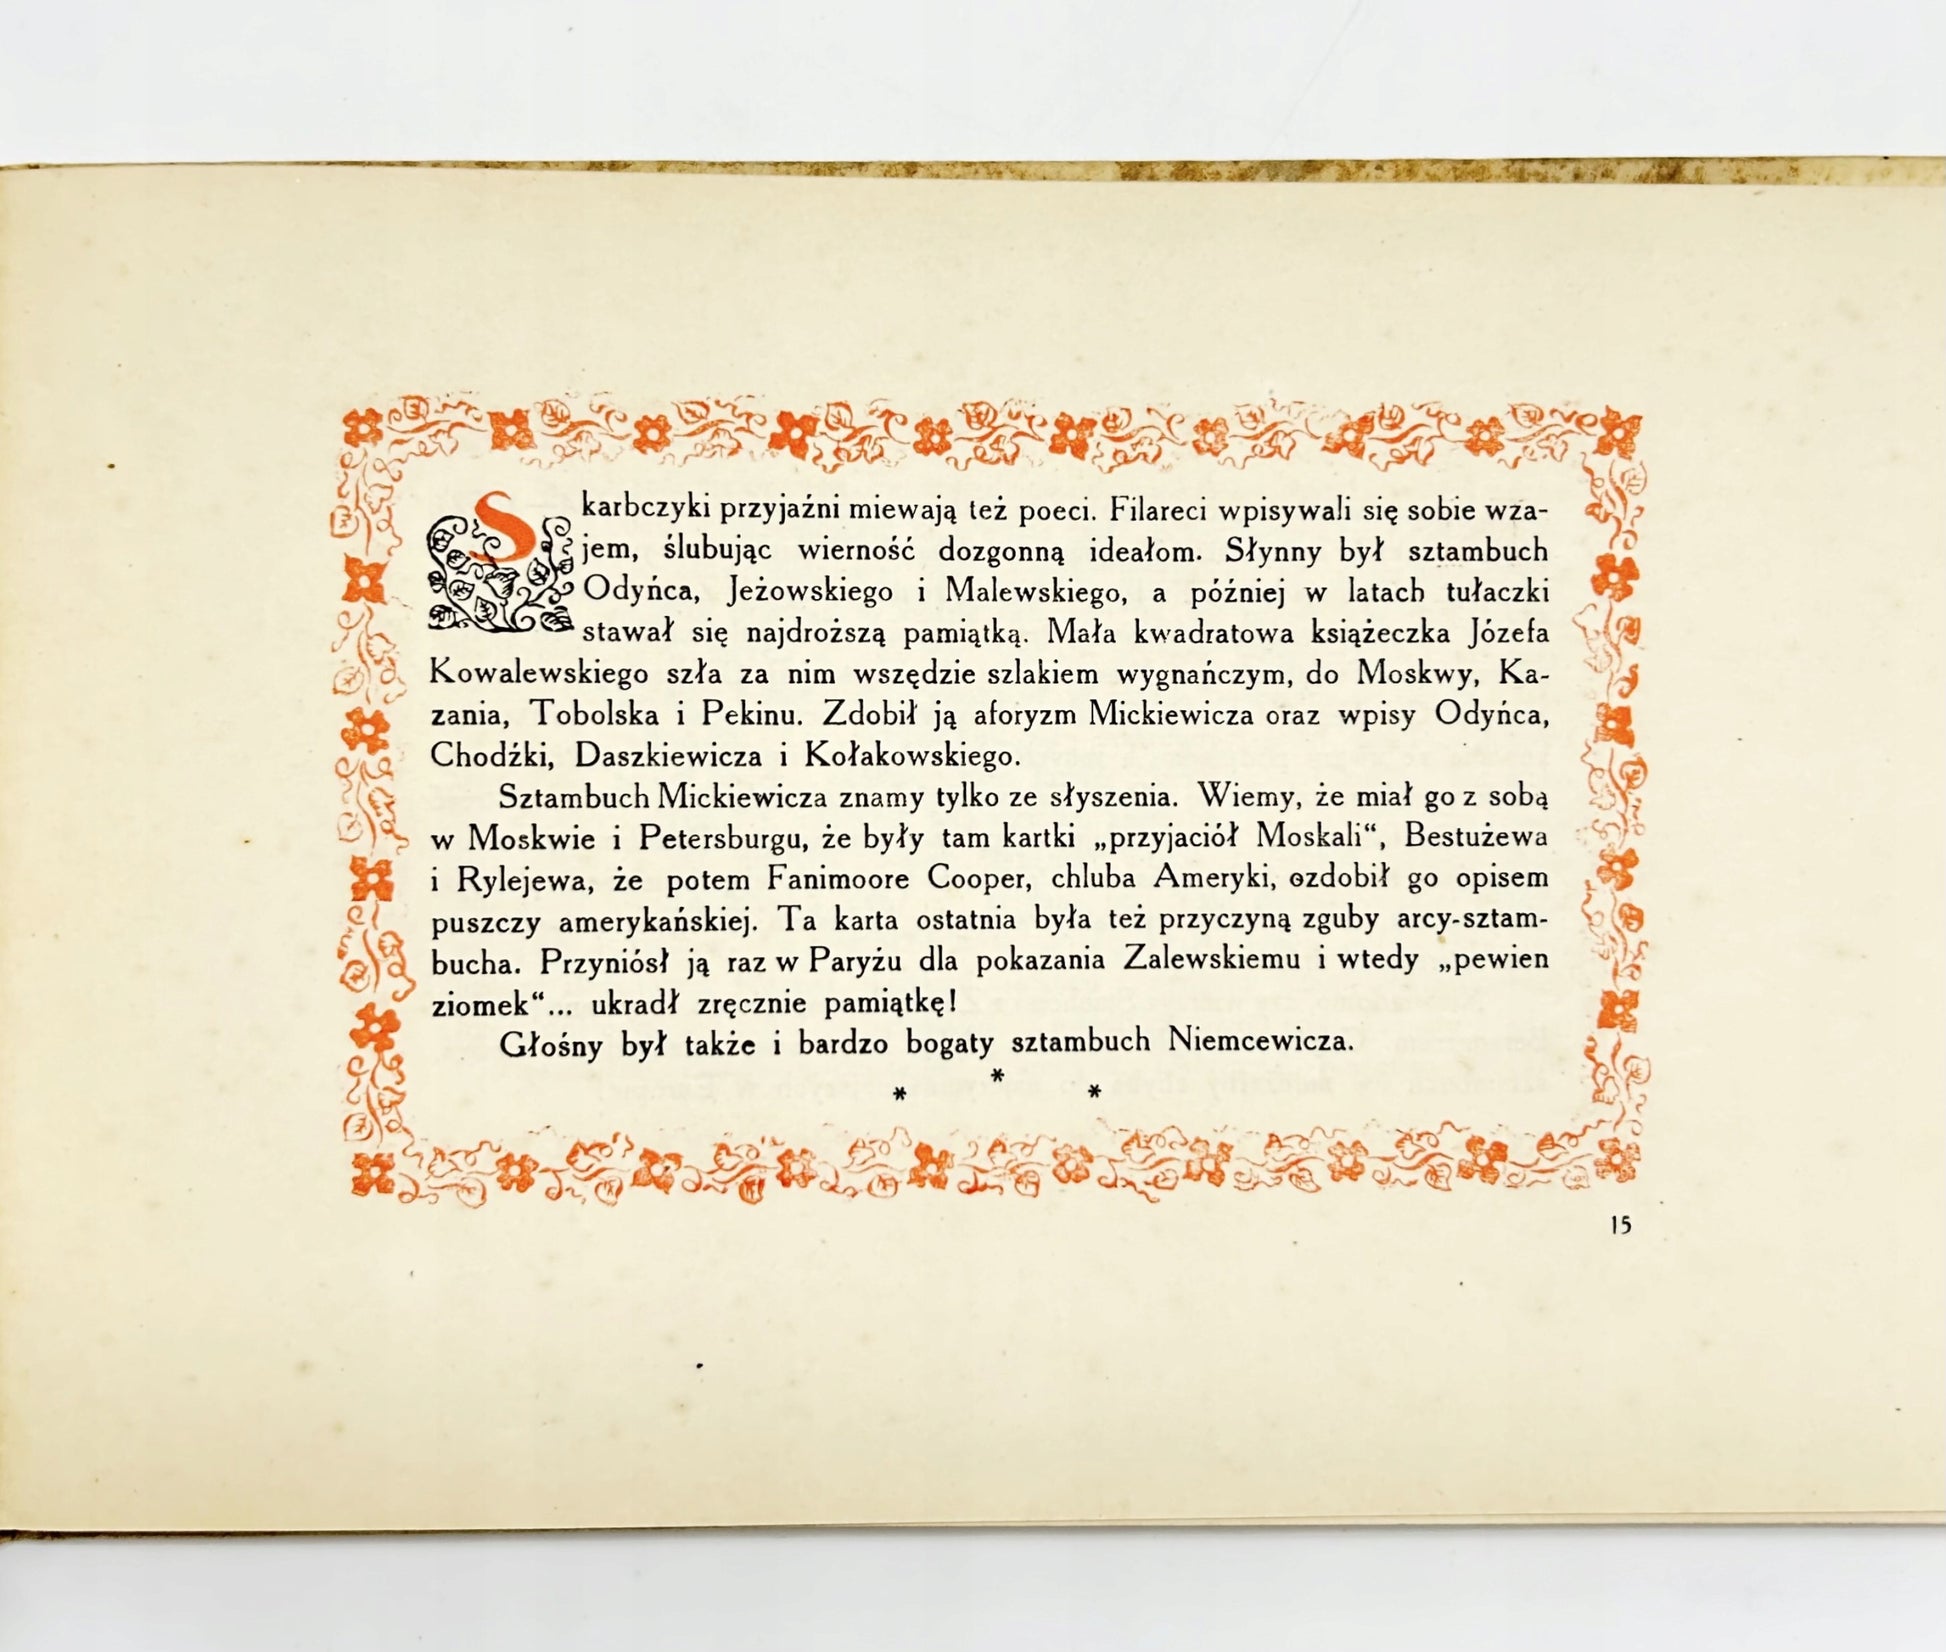 Skarbczyki przyjaźni miewają też poeci. Filareci wpisywali się sobie wza-
jem, ślubując wierność dozgonną ideałom. Słynny był sztambuch
Odyńca, Jeżowskiego i Malewskiego, a później w latach tułaczki
stawał się najdroższą pamiątką. Mała kwadratowa książeczka Józefa
Kowalewskiego szła za nim wszędzie szlakiem wygnańczym, do Moskwy, Ka-
zania, Tobolska i Pekinu. Zdobił ją aforyzm Mickiewicza oraz wpisy Odyńca,
Chodźki, Daszkiewicza i Kołakowskiego.
Sztambuch Mickiewicza znamy tylko ze słyszenia. Wiemy, że miał go z sobą
w Moskwie i Petersburgu, że były tam kartki „przyjaciół Moskali“, Bestużewa
i Rylejewa, że potem Fanimoore Cooper, chluba Ameryki, ozdobił go opisem
puszczy amerykańskiej. Ta karta ostatnia była też przyczyną zguby arcy-sztam-
bucha. Przyniósł ją raz w Paryżu dla pokazania Zalewskiemu i wtedy „pewien
ziomek“... ukradł zręcznie pamiątkę!
Głośny był także i bardzo bogaty sztambuch Niemcewicza.
* * *
15